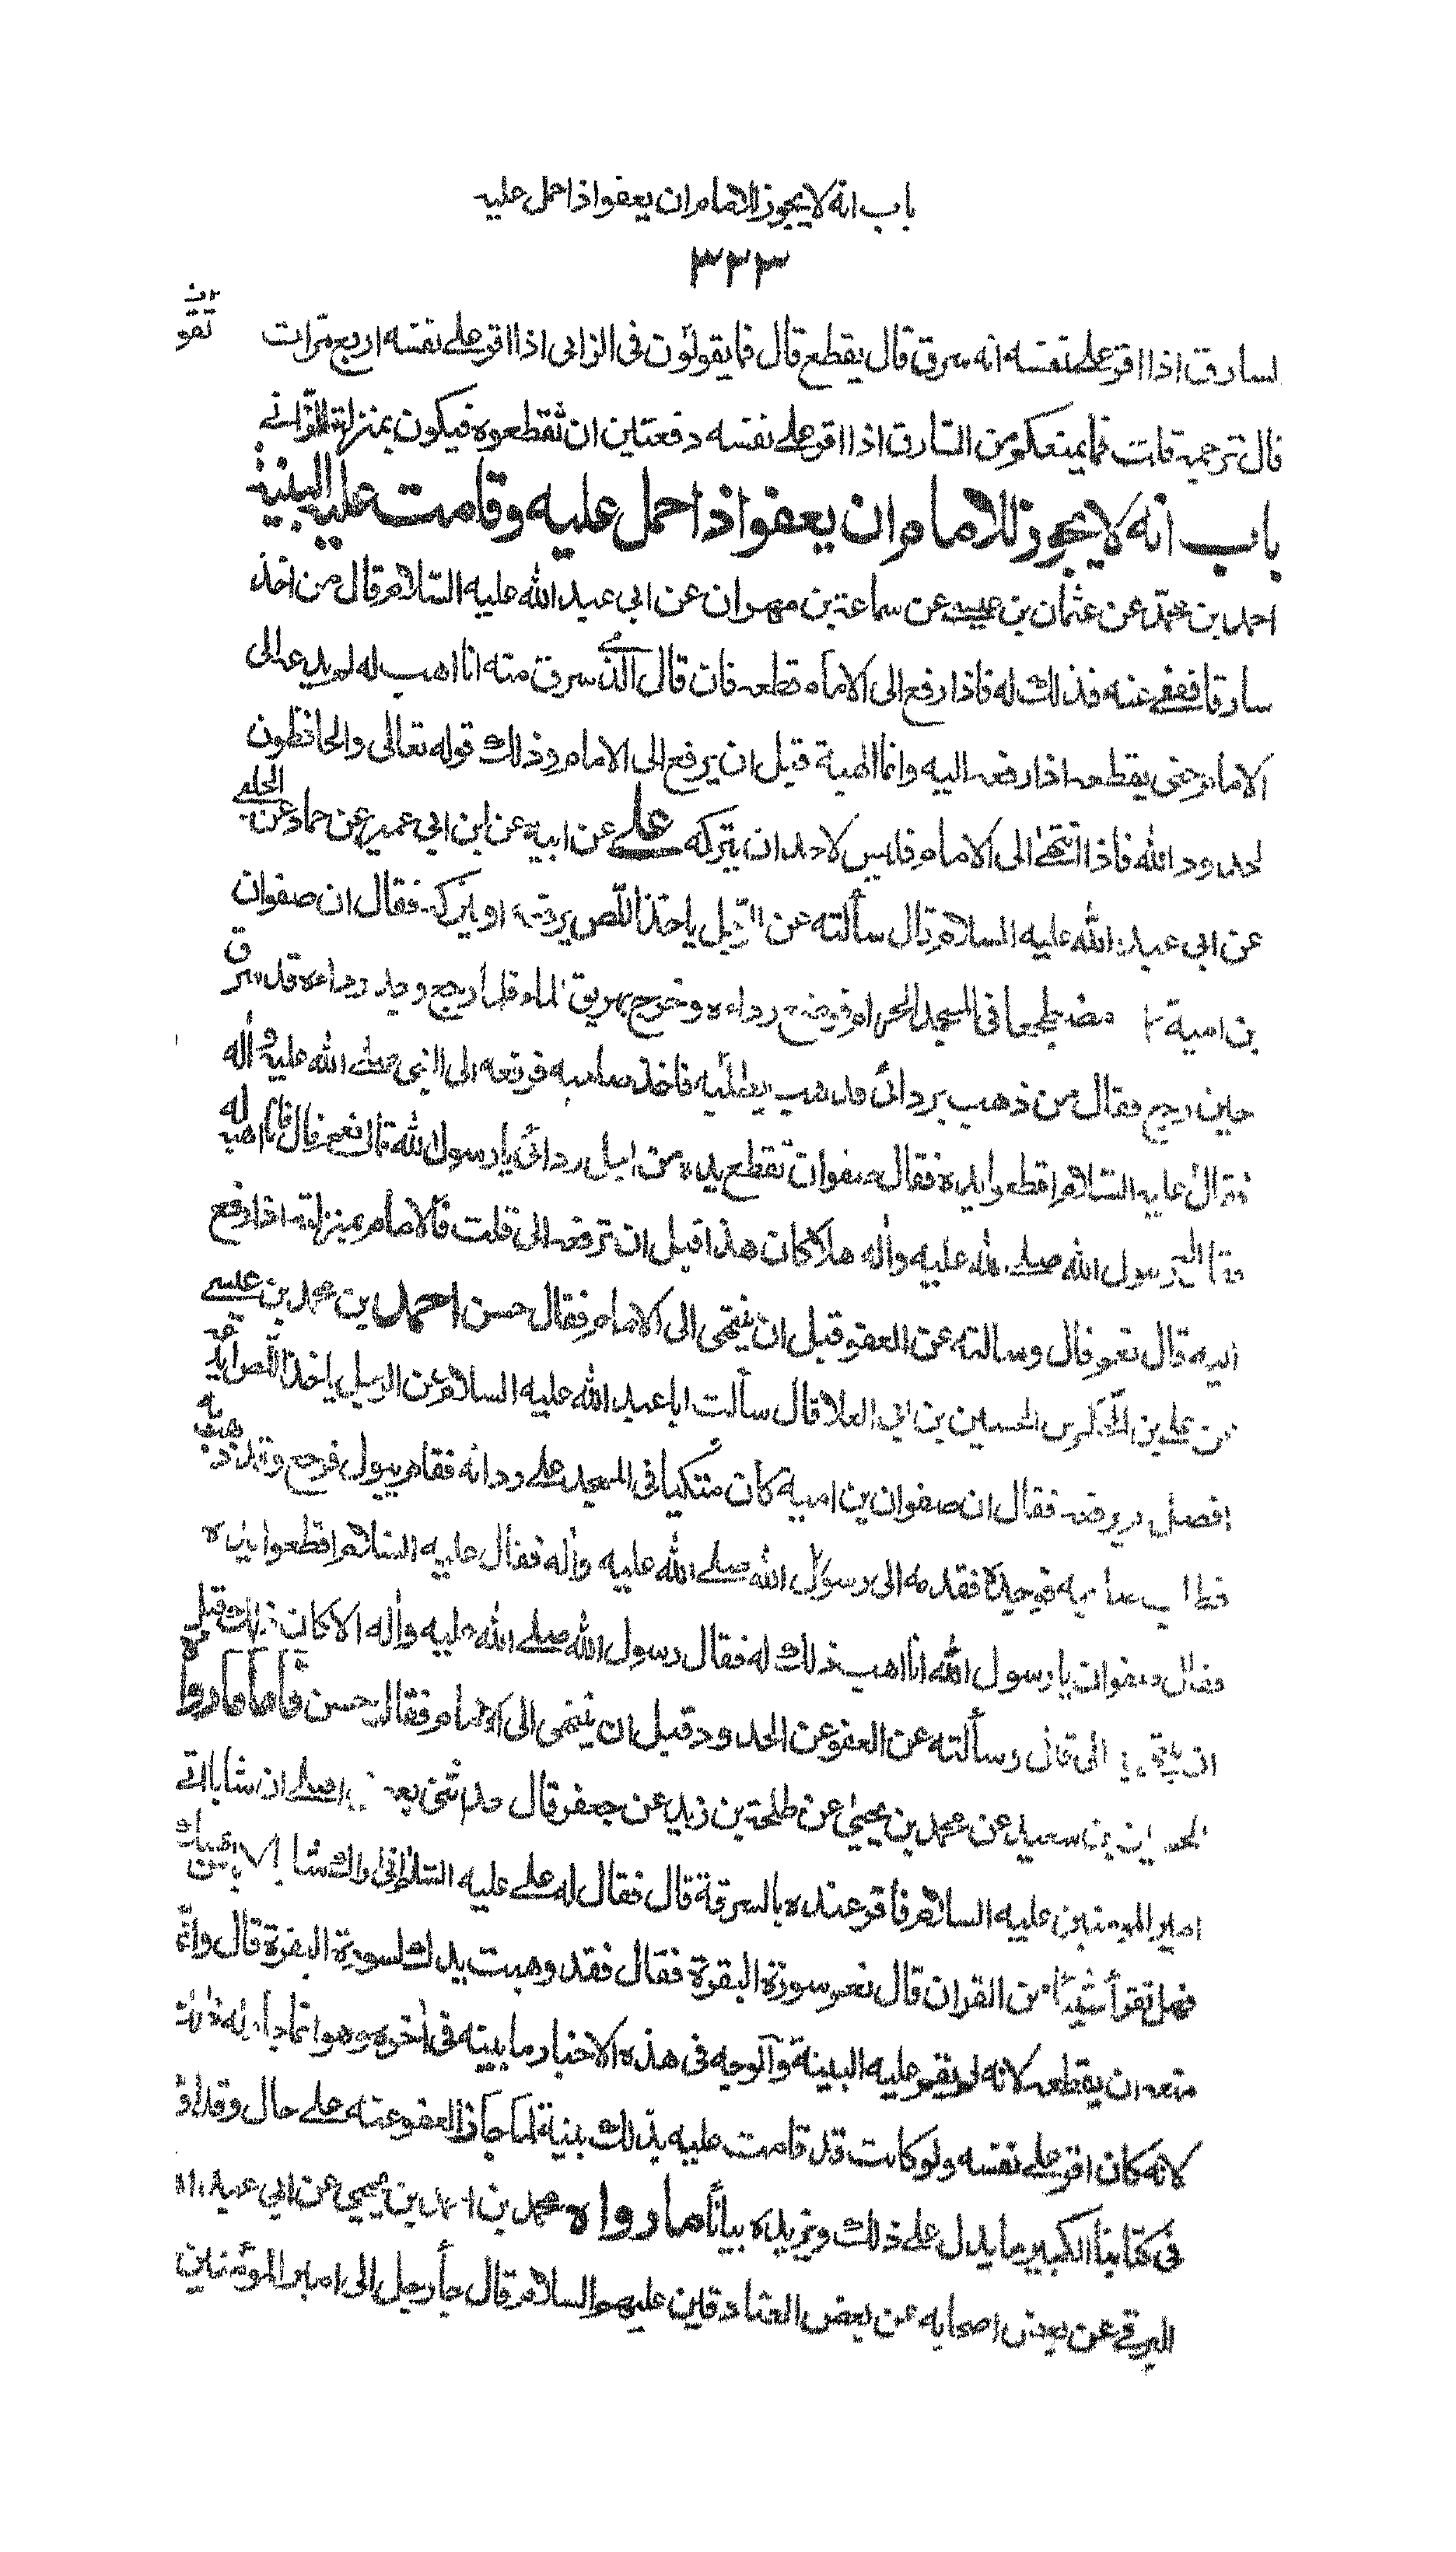 باب انه لا يجوز للامام ان يعفو اذا حمل عليه
٣٣٣
تقو
لسارق اذا اقر على نفسه انه سرق قال يقطع قال فما يقولون فى الزانى اذا اقر على نفسه اربع مرات
قال نرجمه قلت فما يمنعكم من السارق اذا اقر على نفسه دفعتين ان تقطعوه فيكون بمنزلة الزانى
باب انه لا يجوز للامام ان يعفو اذا حمل عليه وقامت عليه البينة
احمد بن محمد عن عثمان بن عيسى عن سماعة بن مهران عن ابى عبد الله عليه السلام قال من اخذ
سارقا فعفى عنه فذلك له فاذا رفع الى الامام قطعه فان قال الذى سرق منه انا اهب له لم يدعه الى
الامام حتى يقطعه اذا رفعه اليه وانما الهبة قبل ان يرفع الى الامام وذلك قوله تعالى والحافظون
لحدود الله فاذا انتهى الى الامام فليس لاحد ان يتركه على عن ابيه عن ابن ابى عمير عن حماد عن الحلبى
عن ابى عبد الله عليه السلام قال سألته عن الرجل ياخذ اللص يرفعه او يتركه فقال ان صفوان
بن امية مضطجعا فى المسجد الحرام فوضع رداءه وخرج يهريق الماء فلما رجع وجد رداءه قد سرق
حين رجع فقال من ذهب بردائى فذهب يطلبه فاخذ صاحبه فرفعه الى النبى صلى الله عليه وآله
فقال عليه السلام اقطعوا يده فقال صفوان تقطع يده من اجل ردائى يا رسول الله قال نعم قال فانا اهبه له
فقال رسول الله صلى الله عليه وآله هلا كان هذا قبل ان ترفعه الى قلت فالامام بمنزلته اذا رفع
اليه قال نعم قال وسالته عن العفو قبل ان ينتهى الى الامام فقال حسن احمد بن محمد بن عيسى
عن على بن الحكم عن الحسين بن ابى العلا قال سألت ابا عبد الله عليه السلام عن الرجل ياخذ اللص ايدعه
افضل ام يرفعه فقال ان صفوان بن امية كان متكيا فى المسجد على ردائه فقام يبول فرجع وقد ذهب به
فطلب صاحبه فوجده فقدمه الى رسول الله صلى الله عليه وآله فقال عليه السلام اقطعوا يده
فقال صفوان يا رسول الله انا اهب ذلك له فقال رسول الله صلى الله عليه وآله الا كان ذلك قبل
ان ينتهى به الى قال وسألته عن العفو عن الحدود قبل ان ينتهى الى الامام فقال حسن فأما ما رواه
الحسين بن سعيد عن محمد بن يحيى عن طلحة بن زيد عن جعفر قال حدثنى بعض اهلى ان شابا اتى
امير المومنين عليه السلام فاقر عنده بالسرقة قال فقال له على عليه السلام انى اراك شابا لا باس بهبتك
فهل تقرأ شيئا من القران قال نعم سورة البقرة فقال فقد وهبت يدك لسورة البقرة قال وانما
منعه ان يقطعه لانه لم يقم عليه البينة فالوجه فى هذه الاخبار ما بينه فى آخره وهو انما
لانه كان اقر على نفسه ولو كانت قد قامت عليه بذلك بنية لما جاز العفو عنه على حال وقد اورد
فى كتابنا الكبير ما يدل على ذلك ويزيده بيانا ما رواه محمد بن احمد بن يحيى عن ابى عبد الله
البرقى عن بعض اصحابه عن بعض الصادقين عليهم السلام قال جاء رجل الى امير المؤمنين